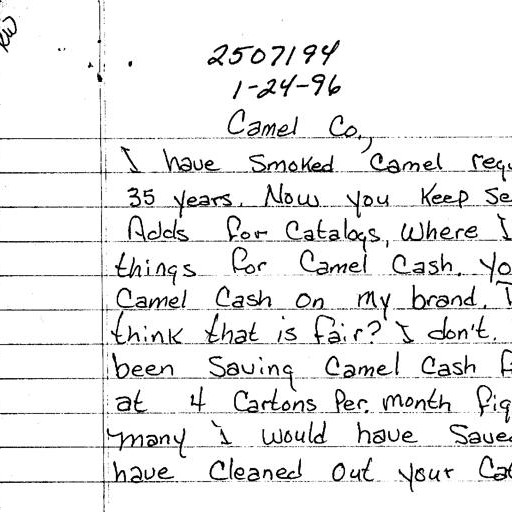 2507194
1-24-96
Camel Co.,
I have Smoked Camel regu
35 years. Now you Keep Se
Adds for Catalogs, Where I
things for Camel Cash. Yo
Camel Cash on my brand.
think that is fair? I don't.
been Saving Camel Cash f
at 4 Cartons Per. month fig
many I would have Saved
have Cleaned out your Cat